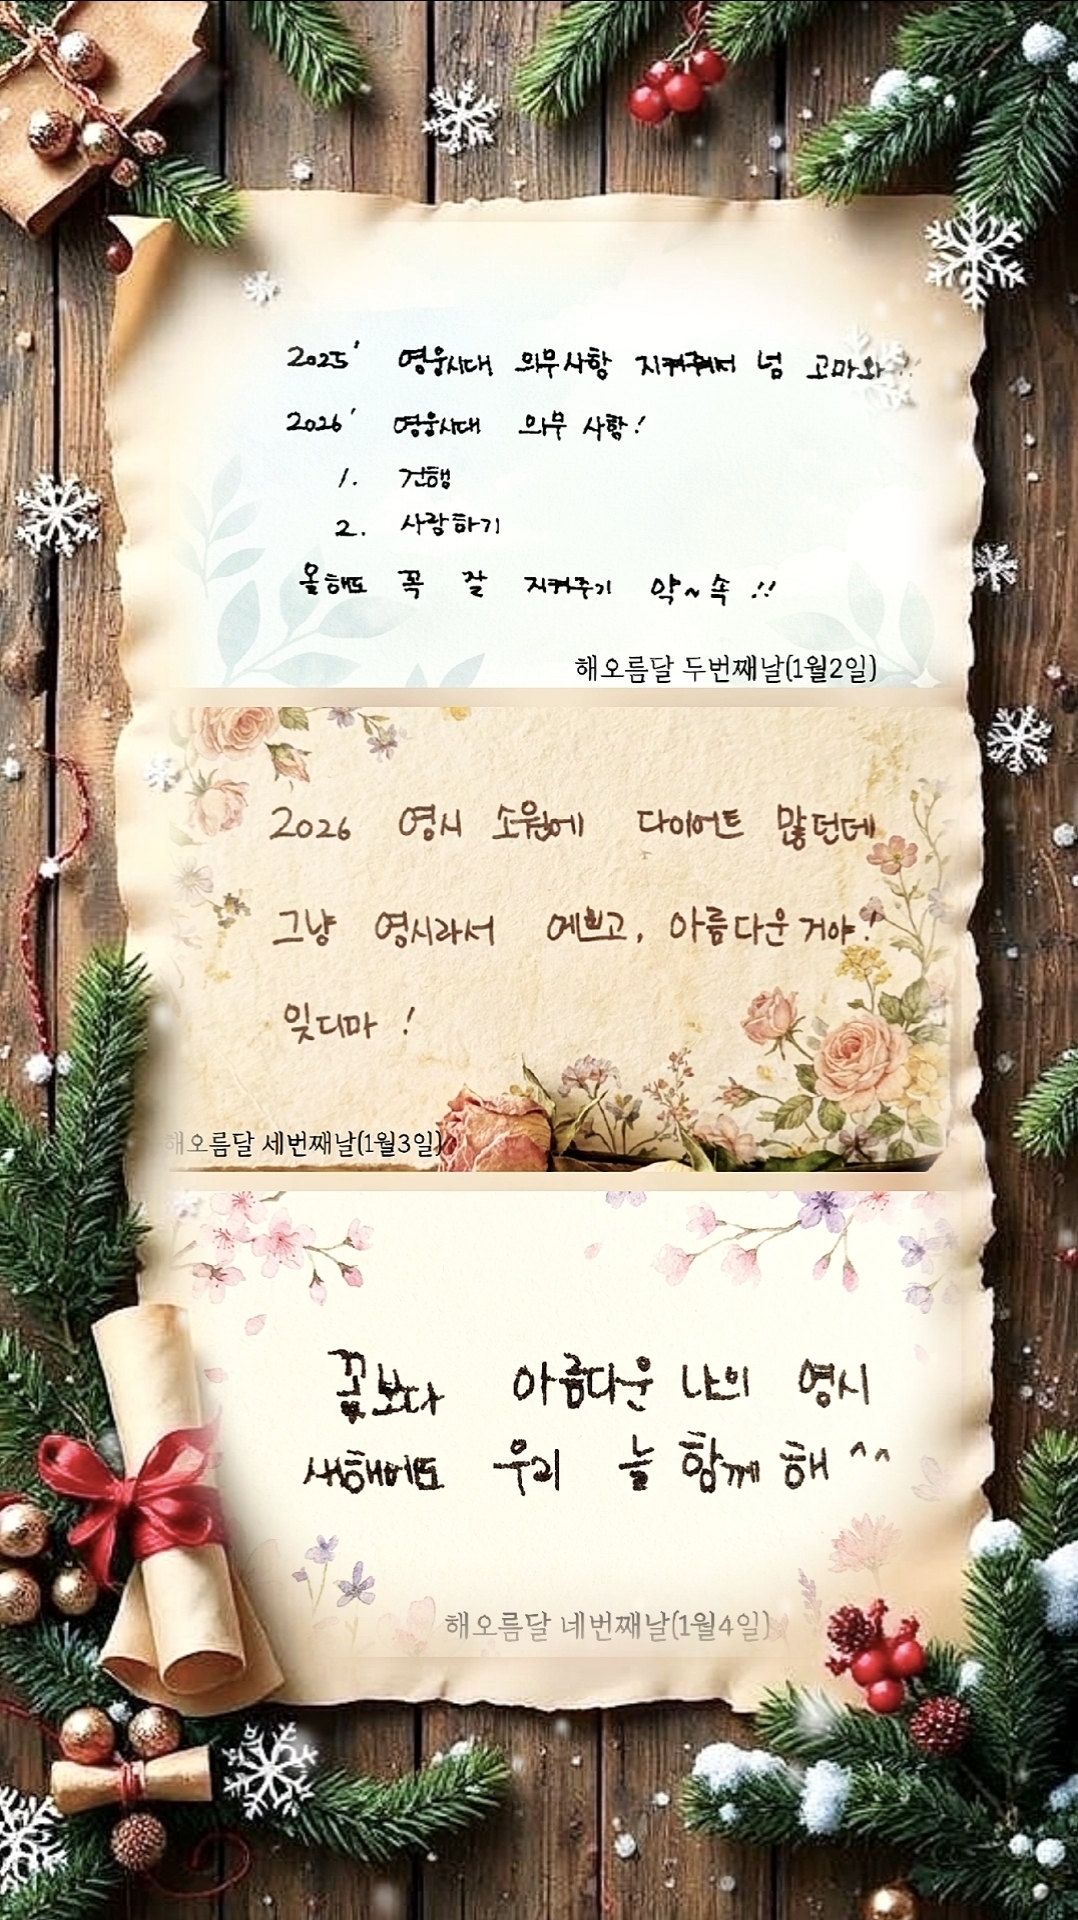 2025' 영웅시대 의무사항 지켜줘서 넘 고마와!!
2026' 영웅시대 의무 사항!
1. 건행
2. 사랑하기
올해도 꼭 잘 지켜주기 약~속 !!
해오름달 두번째날(1월2일)
2026 영시 소원에 다이어트 많던데
그냥 영시라서 예쁘고, 아름다운거야!
잊디마 !
해오름달 세번째날(1월3일)
꽃보다 아름다운 나의 영시
새해에도 우리 늘 함께 해 ^^
해오름달 네번째날(1월4일)